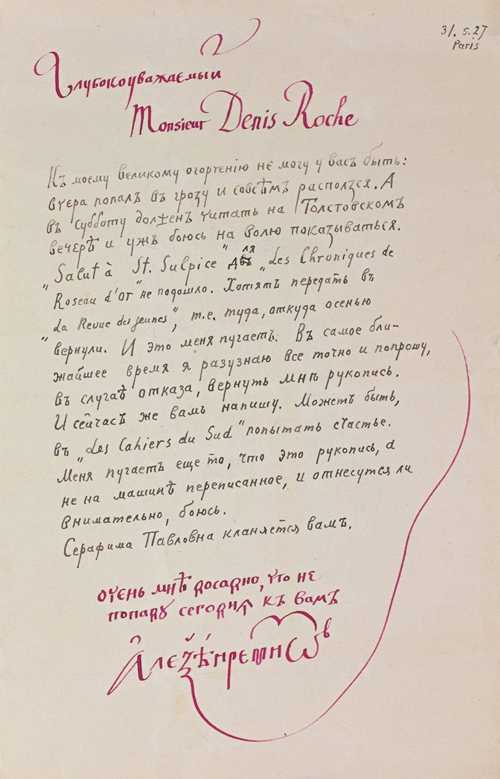 31.5.27
Paris
Глубокоуважаемый
Monsieur Denis Roche
Къ моему великому огортенію не могу у васъ быть:
вчера попалъ въ грозу и совсѣмъ расползся. А
въ субботу долженъ читать на Толстовскомъ
вечерѣ и ужъ боюсь на волю показываться.
„Salut à St. Sulpice“ для „Les Chroniques de
Roseau d'or“ не подошло. Хотятъ передать въ
„La Revue des jeunes“, т.е. туда, откуда осенью
вернули. И это меня пугаетъ. Въ самое бли-
жайшее время я разузнаю все точно и попрошу,
въ случаѣ отказа, вернуть мнѣ рукопись.
И сейчасъ же вамъ напишу. Можетъ быть,
въ „Les Cahiers du Sud“ попытать счастье.
Меня пугаетъ еще то, что это рукопись, а
не на машинѣ переписанное, и отнесутся ли
внимательно, боюсь.
Серафима Павловна кланяется вамъ.
очень мнѣ досадно, что не
попаду сегодня къ вамъ
Алексѣй Ремизовъ